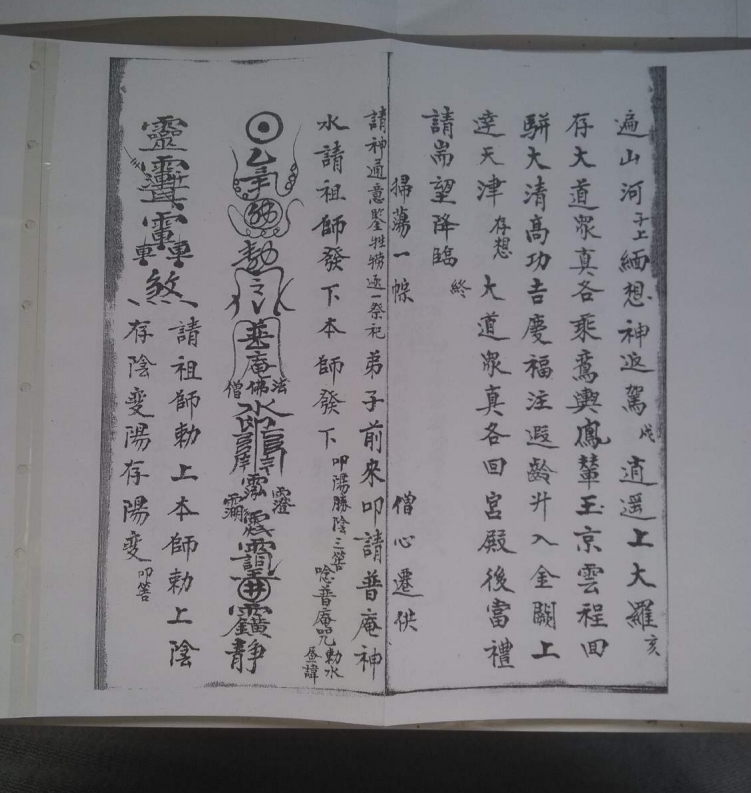 遍山河子上緬想神返駕戌逍遥上大羅亥
存大道眾真各乘鸞輿鳳輦玉京雲程回
駢大清高功吉慶福注遐齡升入金闕上
達天津存想大道眾真各回宮殿後當禮
請耑望降臨終
掃蕩一幛 僧心遷供
請神通意鑒牲物逐一祭祀弟子前來叩請普庵神
水請祖師發下本師發下叩陽勝陰三筶唸普庵咒勅水
昼諱
勅令
普庵
僧佛法
水
靜
靈
煞
請祖師勅上本師勅上陰
存陰變陽存陽變叩筶